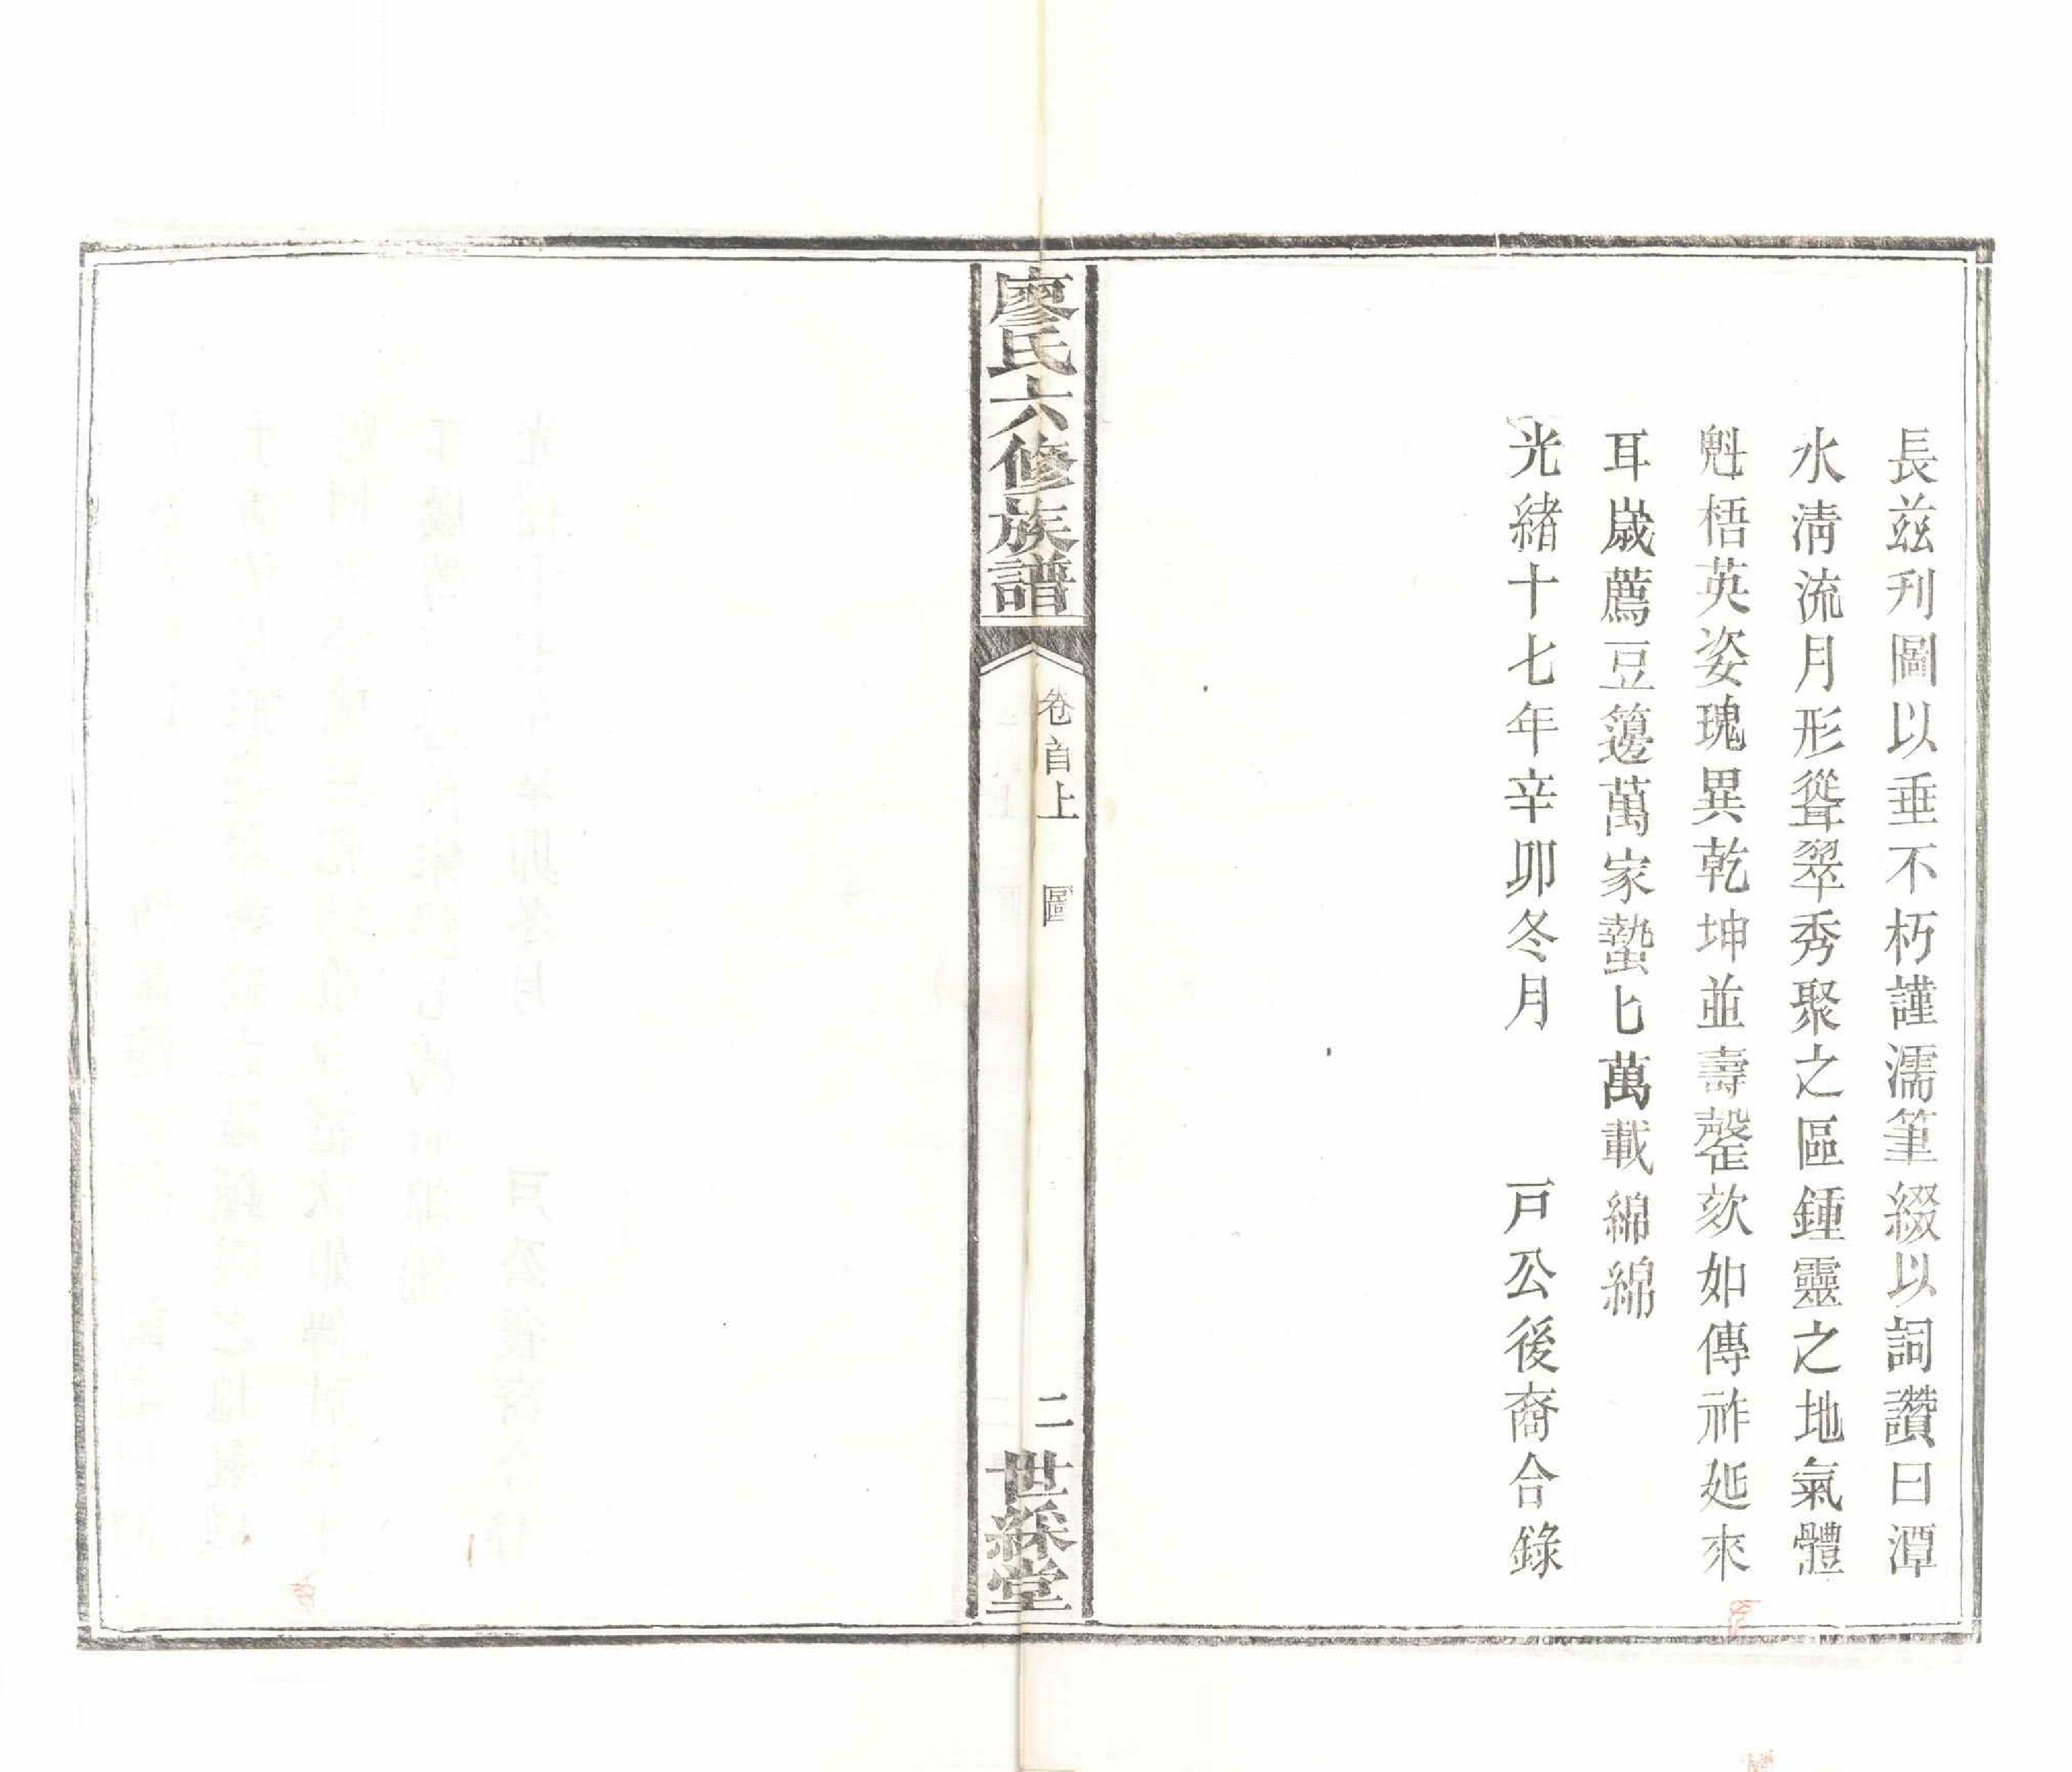 長茲刋圖以垂不朽謹濡筆綴以詞讚曰潭
水淸流月形聳翠秀聚之區鍾靈之地氣體
魁梧英姿瑰異乾坤並壽罄欬如傳祚延來
耳歲薦豆籩萬家蟄匕萬載綿綿
光緒十七年辛卯冬月 戸公後裔合錄
廖氏六修族譜
卷首上 圖
二
世綵堂